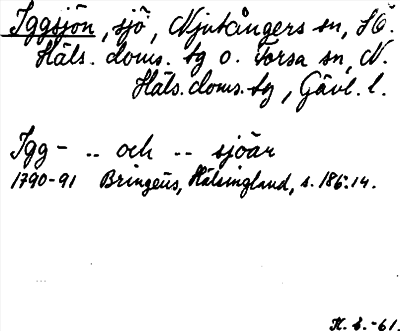 Iggsjön, sjö, Njutångers sn, S Ö.
Häls. doms. tg o. Forsa sn, N.
Häls. doms. tg, Gävl. l.
Igg- .. och .. sjöar
1790-91 Bringéus, Hälsingland, s. 186:14.
-61.